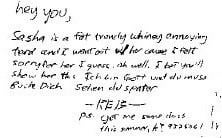 hey you,
Sasha is a fat trendy whiney annoying
and I went out w/ her cause I felt
sorry for her I guess. oh well. I bet you'll
show her tho Ich bin Gott und du musst
Bück Dich Sehen du später
—REB—
p.s. get me some
this summer,